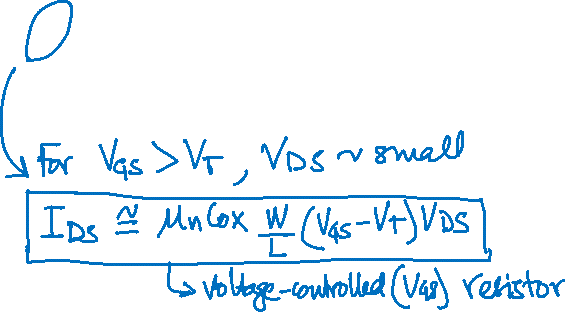 For VGS > VT, VDS ~ small
IDS ≅ μnCox W/L (VGS - VT) VDS
↳ voltage-controlled (VGS) resistor